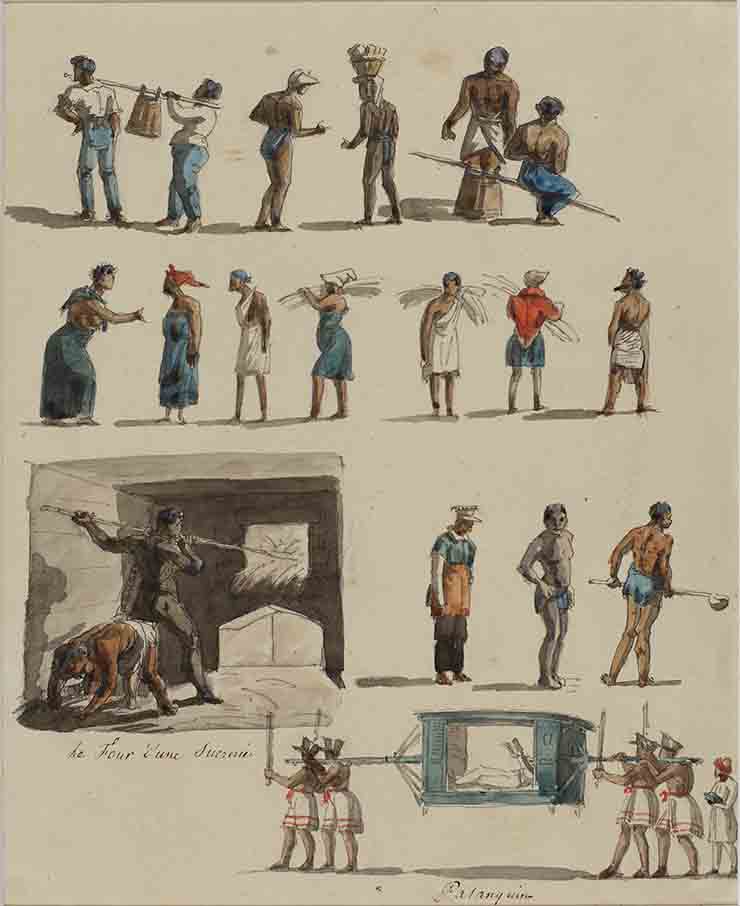 Le Four d'une Sucrerie
Palanquin